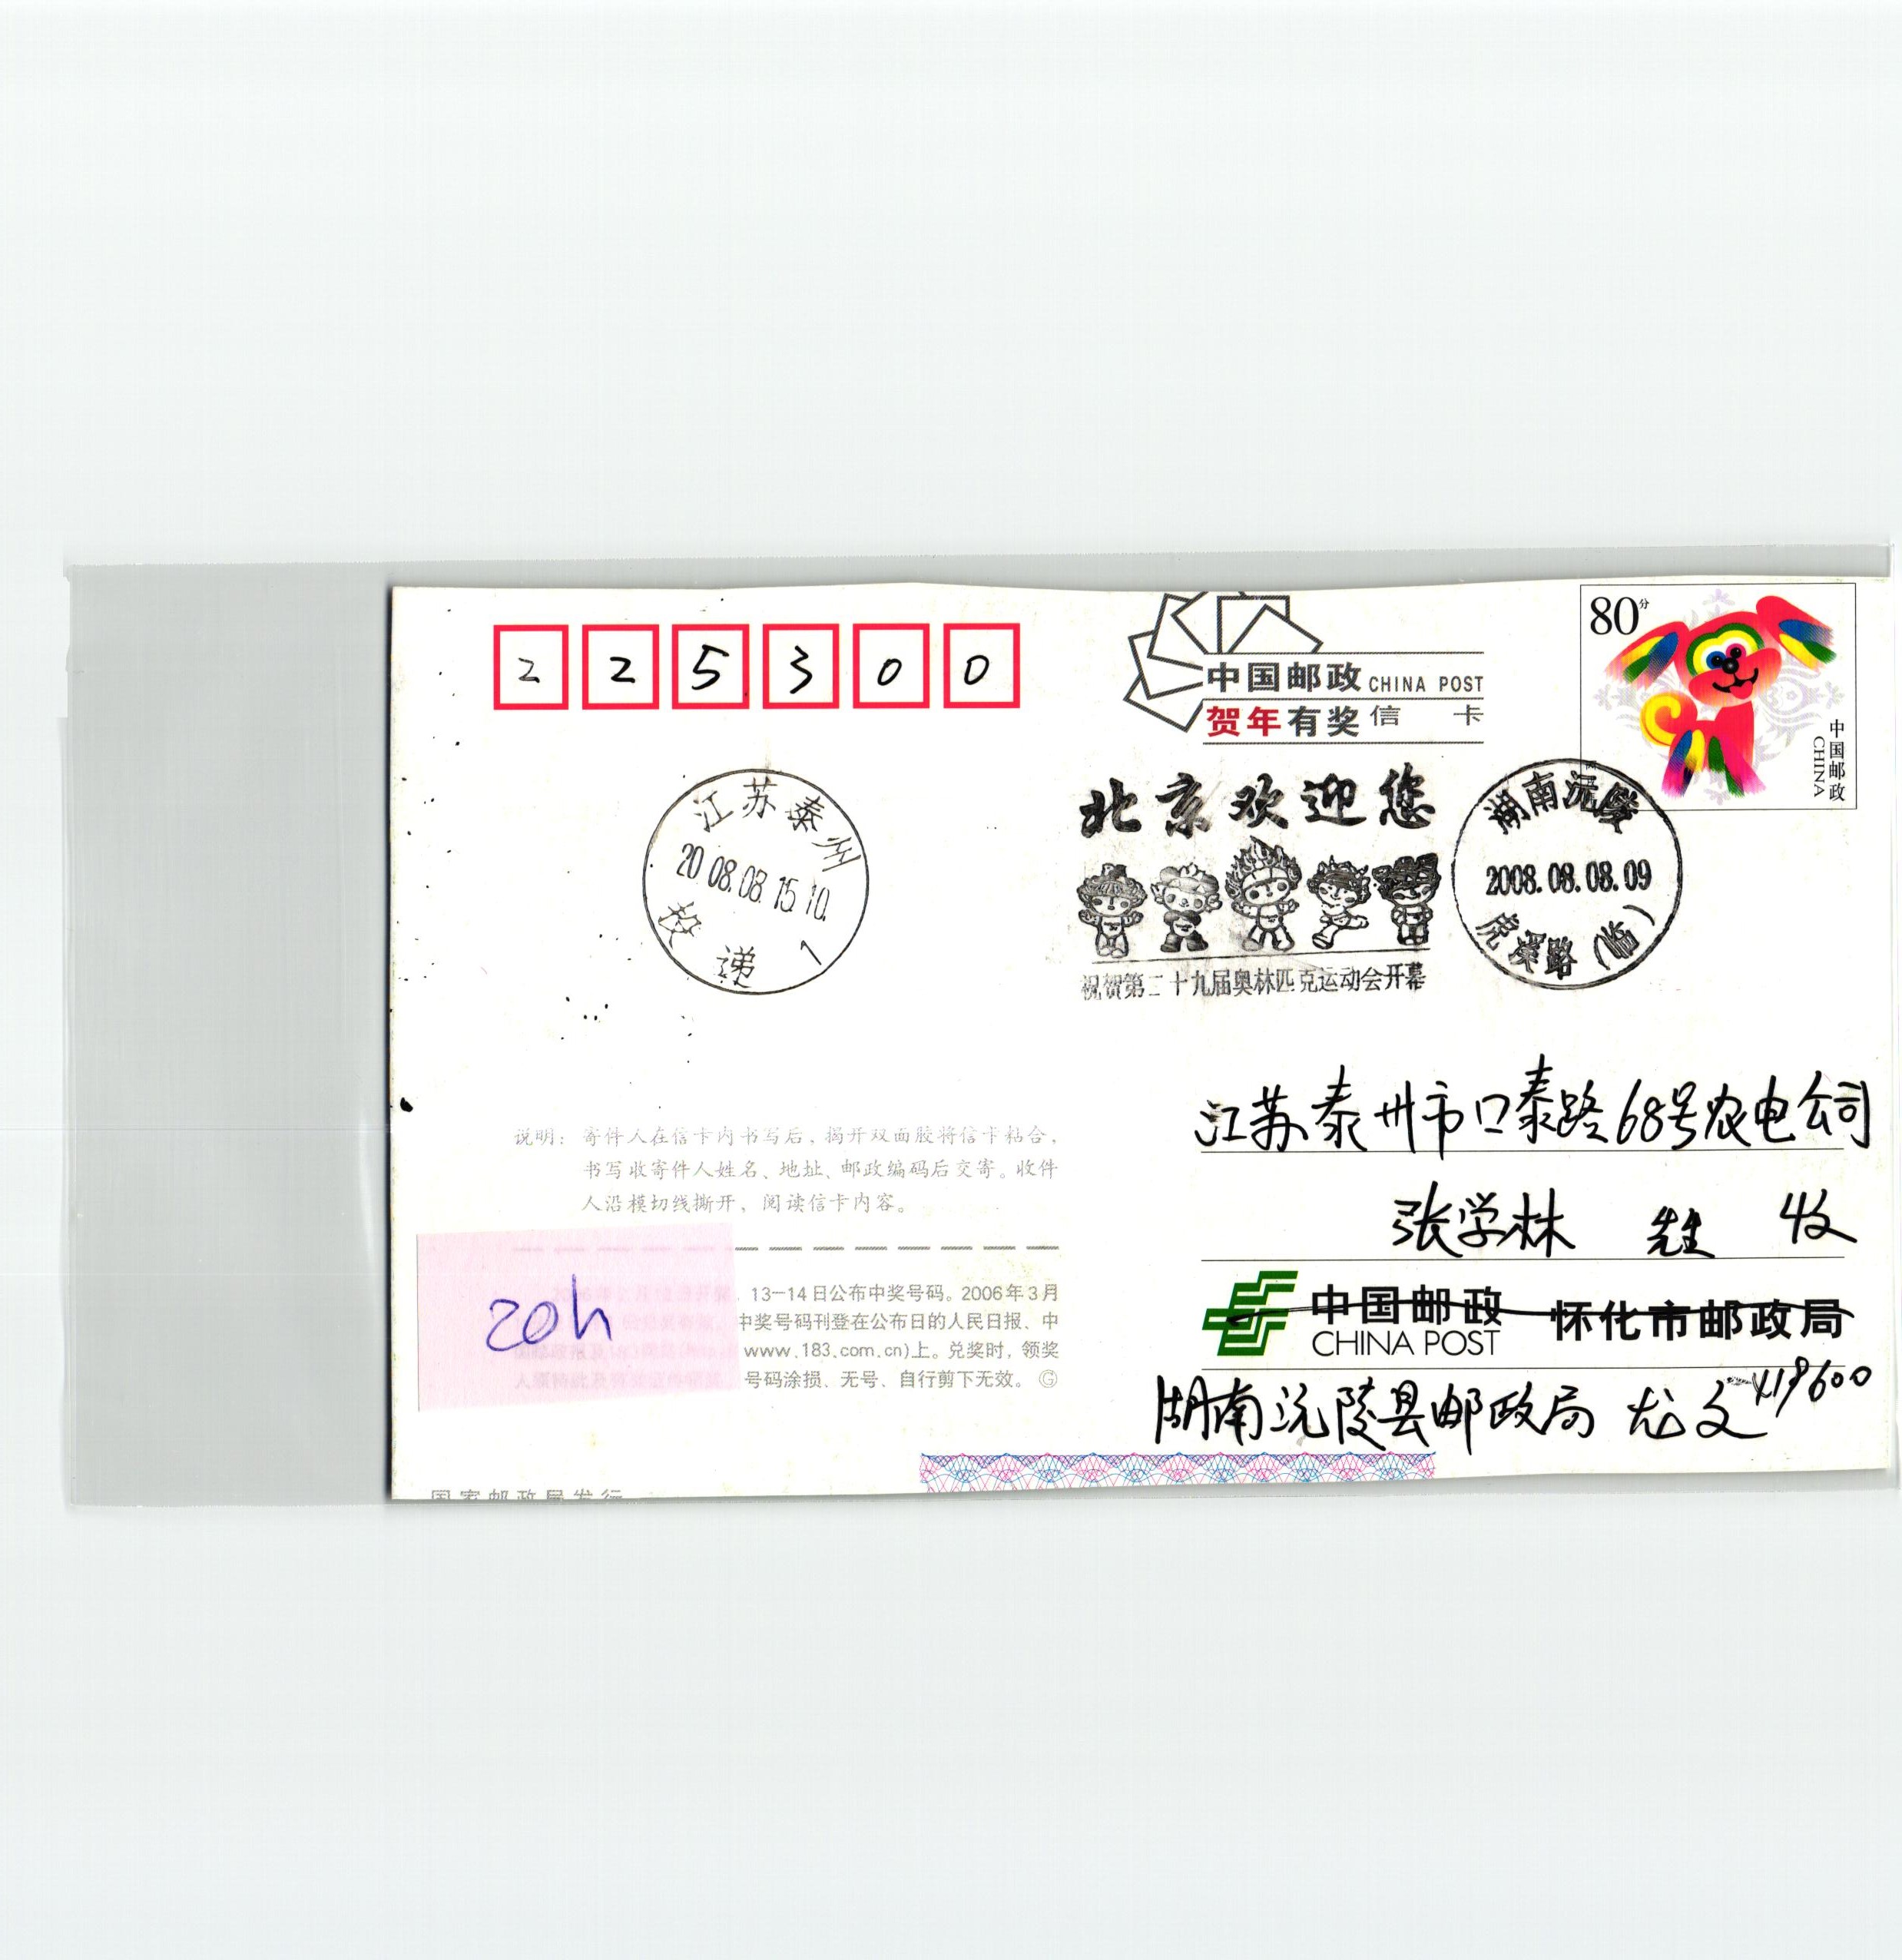 225300
中国邮政 CHINA POST
贺年有奖信 卡
80分
中国邮政
CHINA
江苏泰州
2008.08.15.10
投递
1
北京欢迎您
祝贺第二十九届奥林匹克运动会开幕
湖南沅陵
2008.08.08.09
虎溪路
江苏泰州市口泰路68号农电公司
张学林 先生 收
中国邮政 怀化市邮政局
CHINA POST
湖南沅陵县邮政局 尤文 419600
说明：寄件人在信卡内书写后，揭开双面胶将信卡粘合，
书写收寄件人姓名、地址、邮政编码后交寄。收件
人沿模切线撕开，阅读信卡内容。
13-14日公布中奖号码。2006年3月
中奖号码刊登在公布日的人民日报、中
www.183.com.cn)上。兑奖时，领奖
号码涂损、无号、自行剪下无效。Ⓖ
20h
国家邮政局发行